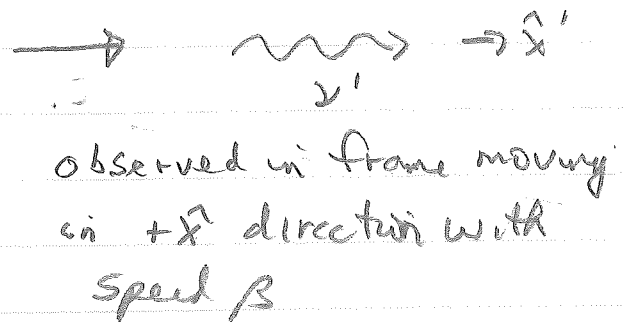 → x̂'
ν'
observed in frame moving
in +x̂ direction with
speed β